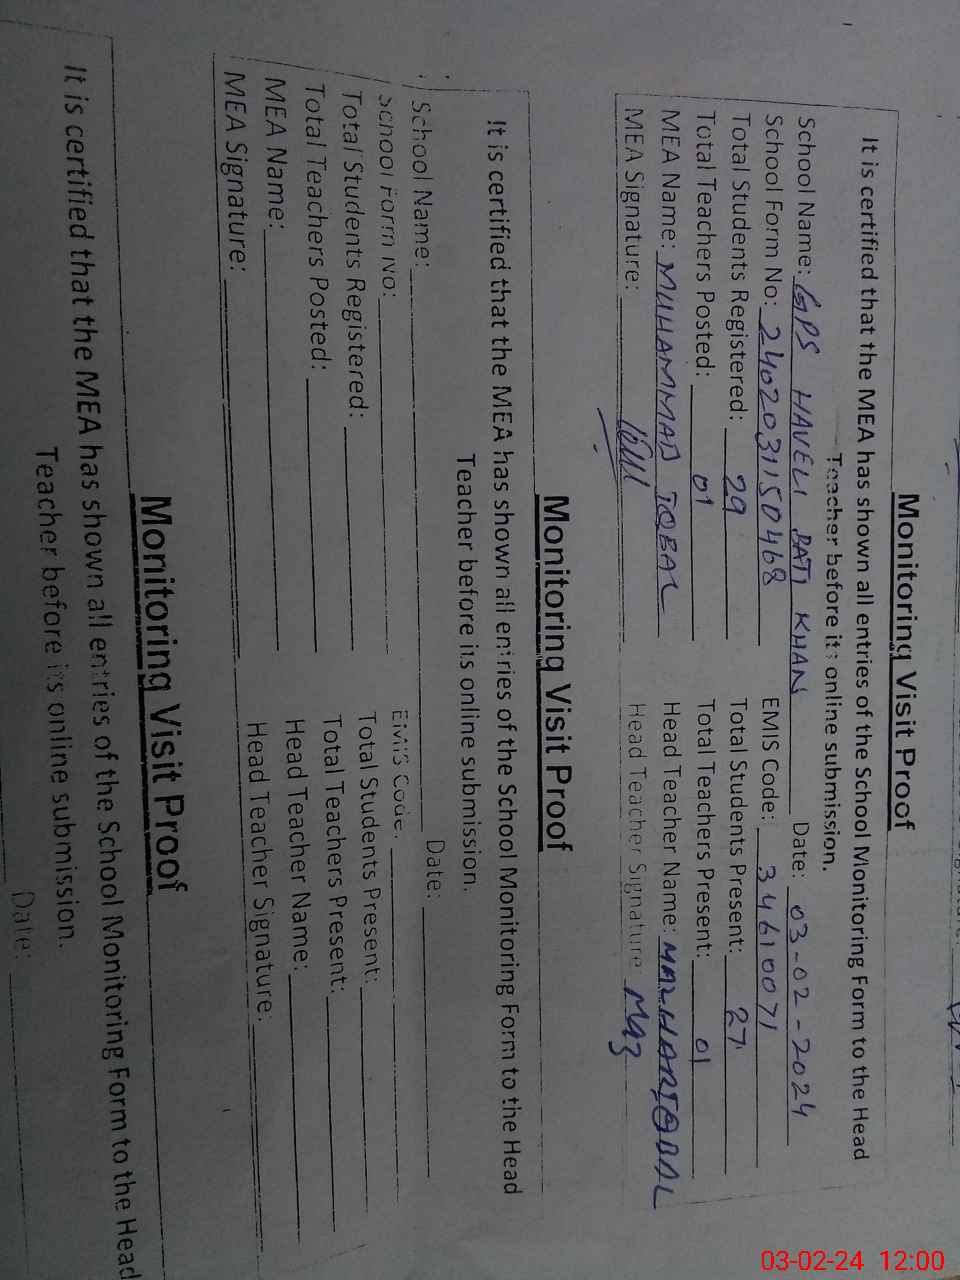 Monitoring Visit Proof
It is certified that the MEA has shown all entries of the School Monitoring Form to the Head
Teacher before its online submission.
School Name: GPS HAVELI BATI KHAN Date: 03-02-2024
School Form No: 2402031150468 EMIS Code: 34610071
Total Students Registered: 29 Total Students Present: 27
Total Teachers Posted: 01 Total Teachers Present: 01
MEA Name: MUHAMMAD IQBAL Head Teacher Name: MAZHAR IQBAL
MEA Signature: Head Teacher Signature
Monitoring Visit Proof
It is certified that the MEA has shown all entries of the School Monitoring Form to the Head
Teacher before its online submission.
School Name: Date:
School Form No: EMIS Code:
Total Students Registered: Total Students Present:
Total Teachers Posted: Total Teachers Present:
MEA Name: Head Teacher Name:
MEA Signature: Head Teacher Signature:
Monitoring Visit Proof
It is certified that the MEA has shown all entries of the School Monitoring Form to the Head
Teacher before its online submission.
Date:
03-02-24 12:00